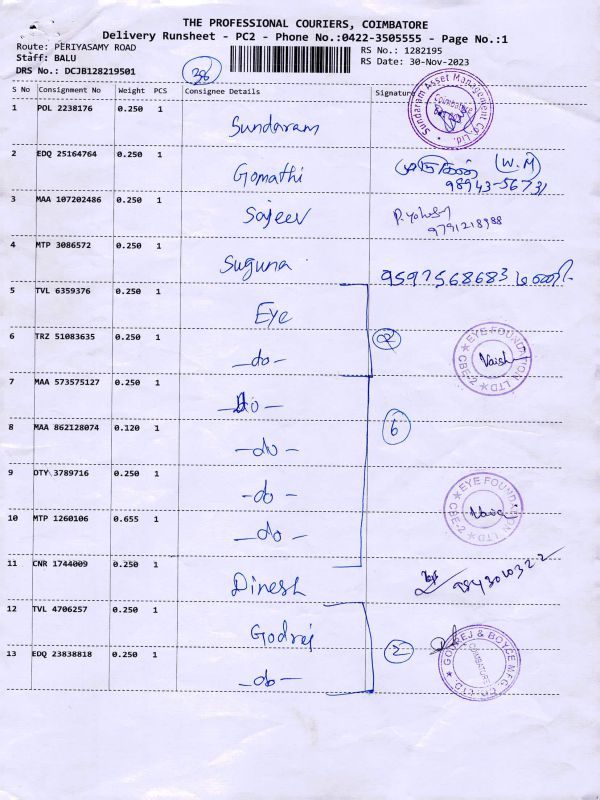 THE PROFESSIONAL COURIERS, COIMBATORE
Delivery Runsheet - PC2 - Phone No.:0422-3505555 - Page No.:1
Route: PERIYASAMY ROAD
Staff: BALU
DRS No.: DCJB128219501
38
RS No.: 1282195
RS Date: 30-Nov-2023
S No Consignment No Weight PCS Consignee Details Signature
1 POL 2238176 0.250 1 Sundaram
Sundaram Asset Management Co. Ltd. Coimbatore
2 EDQ 25164764 0.250 1 Gomathi முருகன் (W.M)
98943-56731
3 MAA 107202486 0.250 1 Sajeev
9791218988
4 MTP 3086572 0.250 1 Suguna 9597568683 மணி
5 TVL 6359376 0.250 1 Eye
6 TRZ 51083635 0.250 1 -do- 02
EYE FOUNDATION LTD CBE-2 Vaish
7 MAA 573575127 0.250 1 -do-
8 MAA 862128074 0.120 1 -do- 6
9 DTY 3789716 0.250 1 -do-
10 MTP 1260106 0.655 1 -do-
EYE FOUNDATION LTD CBE-2
11 CNR 1744009 0.250 1 Dinesh
12 TVL 4706257 0.250 1 Godrej
13 EDQ 23838818 0.250 1 -do-
GODREJ & BOYCE MFG. CO. LTD. COIMBATORE